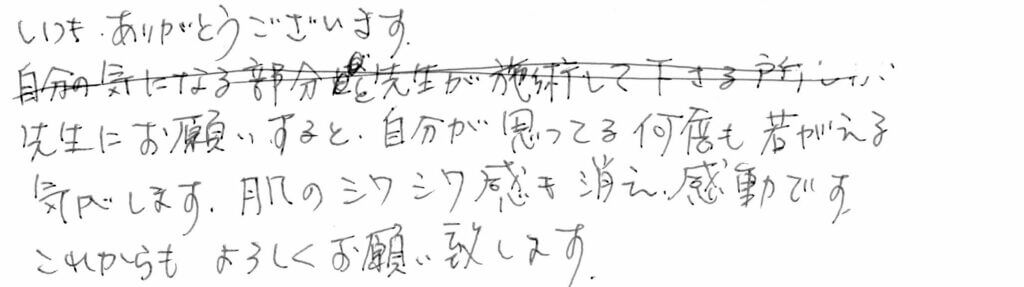 いつも、ありがとうございます。
自分の気になる部分を先生が施術して下さる所
先生にお願いすると、自分が思ってる何倍も若がえる
気がします。肌のシワシワ感も消え、感動です。
これからもよろしくお願い致します。